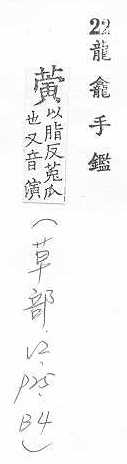 22 龍龕手鑑
蔩以脂反菟瓜
也又音演
(草部.V2.p25.B4)